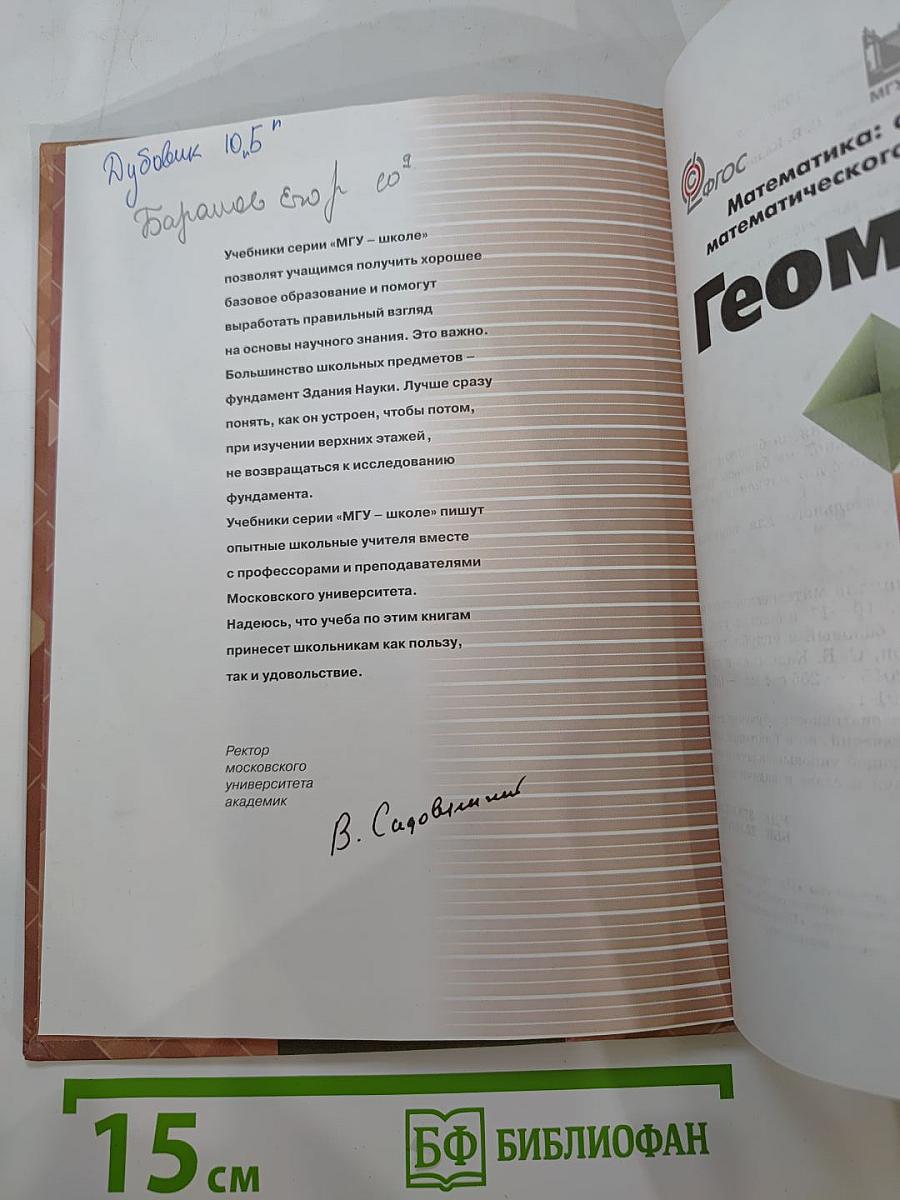 Дубовик 10 „Б"
Баранов Егор
Учебники серии «МГУ – школе»
позволят учащимся получить хорошее
базовое образование и помогут
выработать правильный взгляд
на основы научного знания. Это важно.
Большинство школьных предметов –
фундамент Здания Науки. Лучше сразу
понять, как он устроен, чтобы потом,
при изучении верхних этажей,
не возвращаться к исследованию
фундамента.
Учебники серии «МГУ – школе» пишут
опытные школьные учителя вместе
с профессорами и преподавателями
Московского университета.
Надеюсь, что учеба по этим книгам
принесет школьникам как пользу,
так и удовольствие.
Ректор
московского
университета
академик
В. Садовничий
МГУ
ФГОС
Математика:
математического
Геом
15 см
БФ БИБЛИОФАН